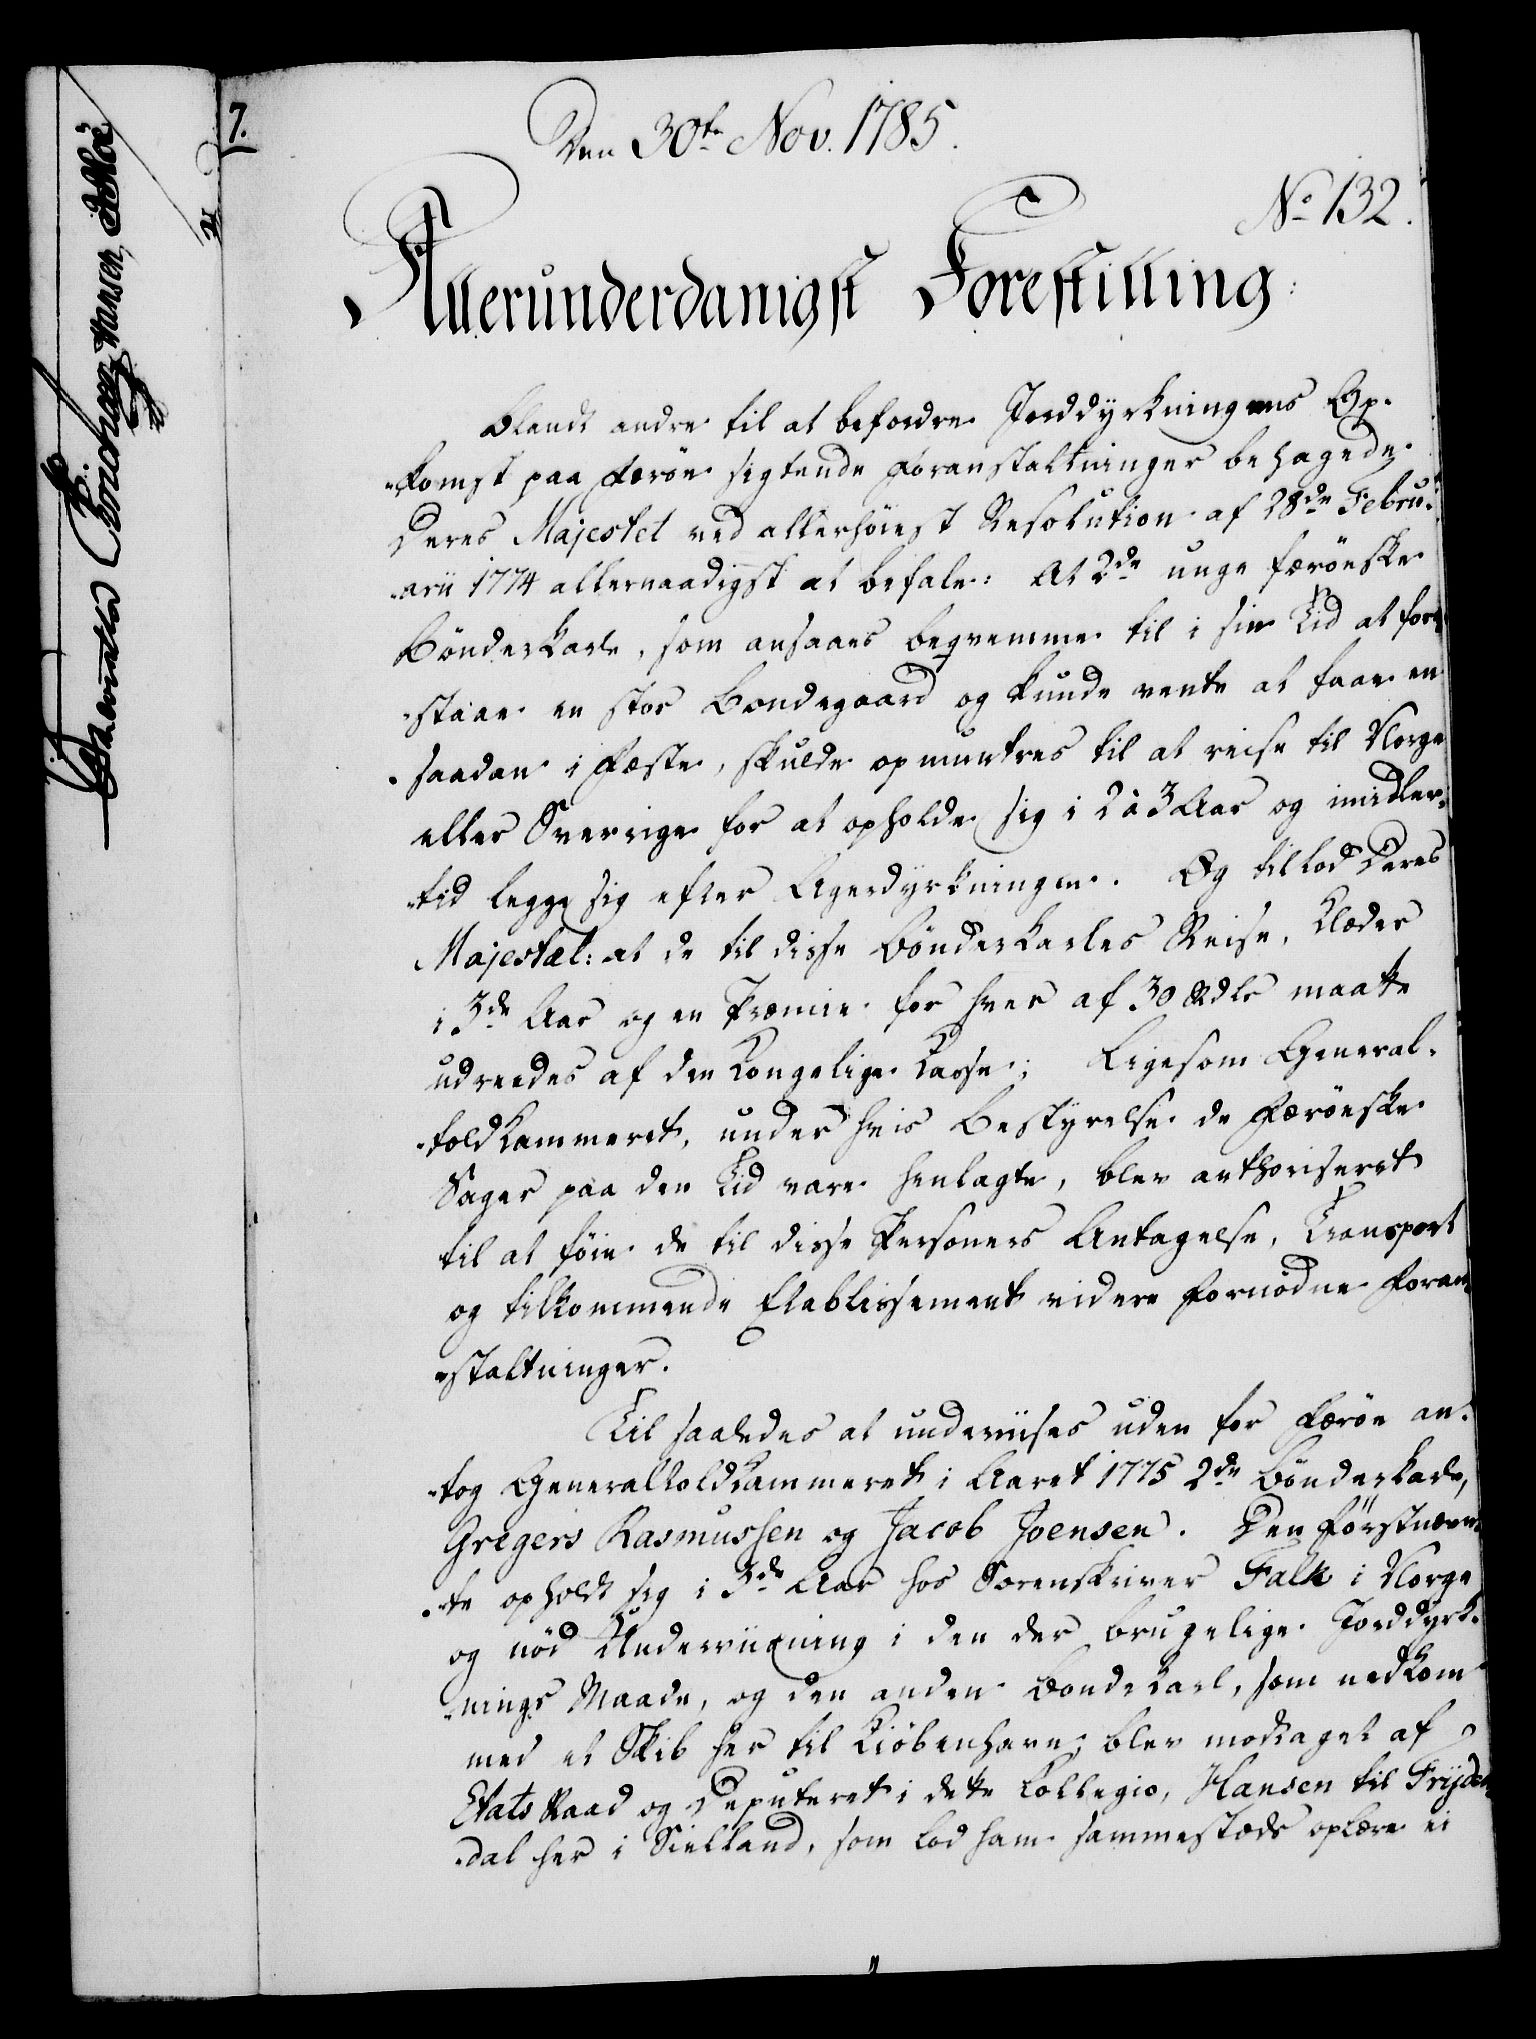 7.
Den 30te Nov. 1785.
No 132.
Allerunderdanigst Forestilling:
Blandt andre til at befordre Jorddyrkningens Op-
-komst paa Færøe sigtende Foranstaltninger behagede
Deres Majestet ved allerhöiest Resolution af 28de Febru-
-arii 1774 allernaadigst at befale: At 2de unge færöeske
Bönderkarle, som ansaaes beqvemme til i sin Tid at fore-
-staae en stor Bondegaard og kunde vente at faae en
saadan i Fæste, skulde opmuntres til at reise til Norge
eller Sverrige for at opholde sig i 2 à 3 Aar og imidler-
-tid legge sig efter Agerdyrkningen. Og tillod Deres
Majestæt: at de til disse Bönderkarles Reise, Klæder
i 3de Aar og en Præmie for hver af 30 Rdlr maatte
udreedes af den Kongelige Kasse; Ligesom General-
-toldkammeret, under hvis Bestyrelse de Færöeske
Sager paa den Tid vare henlagte, blev authoriseret
til at föie de til disse Personers Antagelse, Transport
og tilkommende Etablissement videre fornödne Foran-
-staltninger.
Til saaledes at underviises uden for Færöe an-
-tog Generaltoldkammeret i Aaret 1775 2de Bönderkarle,
Gregers Rasmussen og Jacob Joensen. Den förstnævn-
-te opholdt sig i 3de Aar hos Sorenskriver Falk i Norge
og nöd Underviisning i den der brugelige Jorddyrk-
-nings Maade, og den anden Bondekarl, som nedkom
med et Skib her til Kiöbenhavn, blev modtaget af
Etats Raad og Deputeret i dette Collegio, Hansen til Frÿden-
-dal her i Sielland, som lod ham sammestæds oplære ei